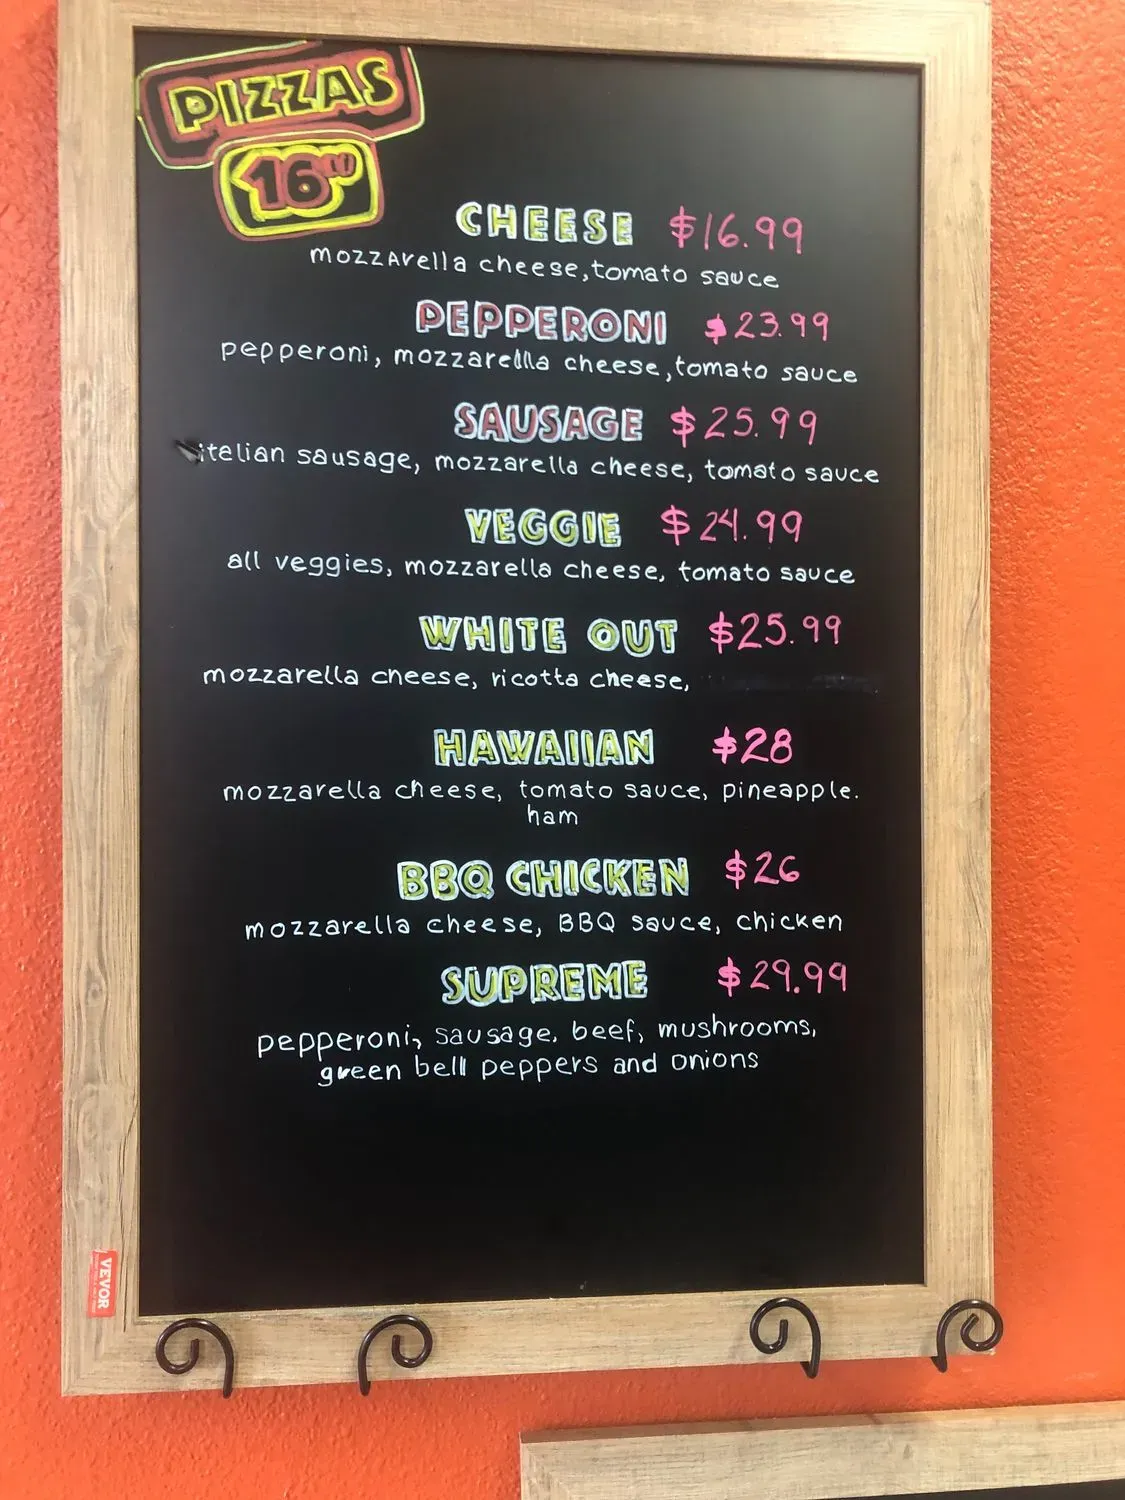 PIZZAS
16"
CHEESE $16.99
mozzArella cheese, tomato sauce
PEPPERONI $23.99
pepperoni, mozzarella cheese, tomato sauce
SAUSAGE $25.99
italian sausage, mozzarella cheese, tomato sauce
VEGGIE $24.99
all veggies, mozzarella cheese, tomato sauce
WHITE OUT $25.99
mozzarella cheese, ricotta cheese,
HAWAIIAN $28
mozzarella cheese, tomato sauce, pineapple.
ham
BBQ CHICKEN $26
mozzarella cheese, BBQ sauce, chicken
SUPREME $29.99
pepperoni, sausage, beef, mushrooms,
green bell peppers and onions
VEVOR